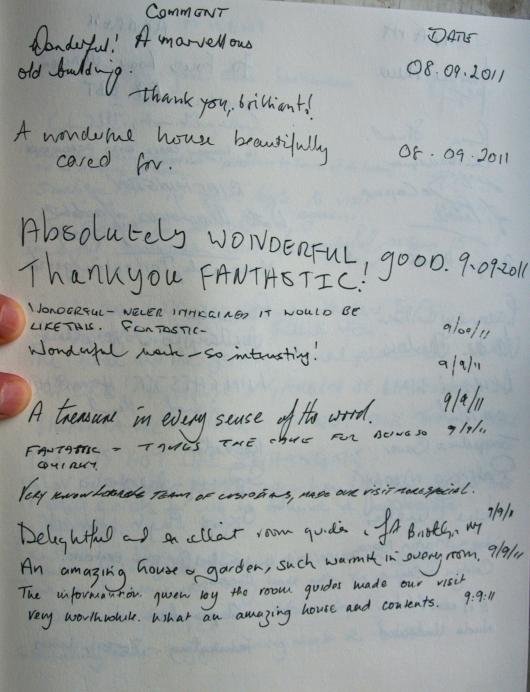 COMMENT DATE
Wonderful! A marvellous
old building. 08.09.2011
Thank you, brilliant!
A wonderful house beautifully
cared for. 08.09.2011
Absolutely WONDERFUL, GOOD. 9.09.2011
Thankyou FANTASTIC!
WONDERFUL - NEVER IMAGINED IT WOULD BE
LIKE THIS. FANTASTIC - 9/00/11
Wonderful work - so interesting! 9/9/11
A treasure in every sense of the word. 9/9/11
FANTASTIC - TAKES THE CAKE FOR BEING SO 9/9/11
QUIRKY.
VERY KNOWLEDGEABLE TEAM OF CUSTODIANS, MADE OUR VISIT MORE SPECIAL. 9/9/11
Delightful and excellent room guides Brooklyn NY
An amazing house & garden, such warmth in every room. 9/9/11
The information given by the room guides made our visit 9:9:11
very worthwhile. What an amazing house and contents.